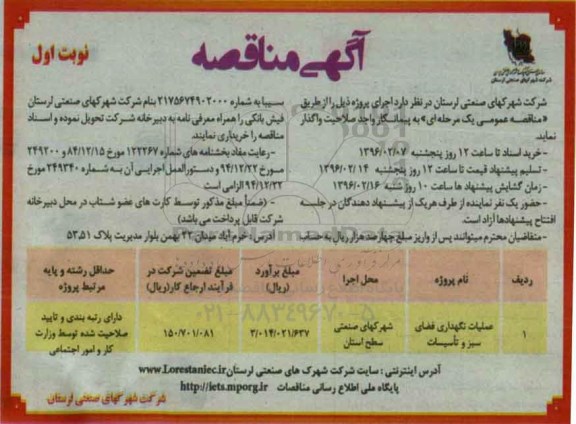 آگهی مناقصه
نوبت اول
شرکت شهرکهای صنعتی لرستان
شرکت شهرکهای صنعتی لرستان در نظر دارد اجرای پروژه ذیل را از طریق
«مناقصه عمومی یک مرحله ای» به پیمانکار واجد صلاحیت واگذار
نماید.
- خرید اسناد تا ساعت ۱۲ روز پنجشنبه ۱۳۹۶/۰۲/۰۷
- تسلیم پیشنهاد قیمت تا ساعت ۱۲ روز پنجشنبه ۱۳۹۶/۰۲/۱۴
- زمان گشایش پیشنهاد ها ساعت ۱۰ روز شنبه ۱۳۹۶/۰۲/۱۶
- حضور یک نفر نماینده از طرف هریک از پیشنهاد دهندگان در جلسه
افتتاح پیشنهادها آزاد است.
- متقاضیان محترم میتوانند پس از واریز مبلغ چهارصد هزار ریال به حساب
سیبا به شماره ۲۱۷۵۶۷۴۹۰۲۰۰۰ بنام شرکت شهرکهای صنعتی لرستان
فیش بانکی را همراه معرفی نامه به دبیرخانه شرکت تحویل نموده و اسناد
مناقصه را خریداری نمایند.
- رعایت مفاد بخشنامه های شماره ۱۲۲۲۶۷ مورخ ۸۴/۱۲/۱۵ و ۲۴۹۲۰۰
مورخ ۹۴/۱۲/۲۲ و دستورالعمل اجرایی آن به شماره ۲۴۹۳۴۰ مورخ
۹۴/۱۲/۲۲ الزامی است
- (ضمناً مبلغ مذکور توسط کارت های عضو شتاب در محل دبیرخانه
شرکت قابل پرداخت می باشد)
آدرس: خرم آباد میدان ۲۲ بهمن بلوار مدیریت پلاک ۵۳،۵۱
ردیف نام پروژه محل اجرا مبلغ برآورد (ریال) مبلغ تضمین شرکت در فرآیند ارجاع کار (ریال) حداقل رشته و پایه مرتبط پروژه
۱ عملیات نگهداری فضای سبز و تأسیسات شهرکهای صنعتی سطح استان ۳/۰۱۴/۰۲۱/۶۳۷ ۱۵۰/۷۰۱/۰۸۱ دارای رتبه بندی و تایید صلاحیت شده توسط وزارت کار و امور اجتماعی
۰۲۱-۸۸۳۴۹۶۷۰-۵
آدرس اینترنتی: سایت شرکت شهرک های صنعتی لرستان www.Lorestaniec.ir
پایگاه ملی اطلاع رسانی مناقصات http://iets.mporg.ir
شرکت شهرکهای صنعتی لرستان